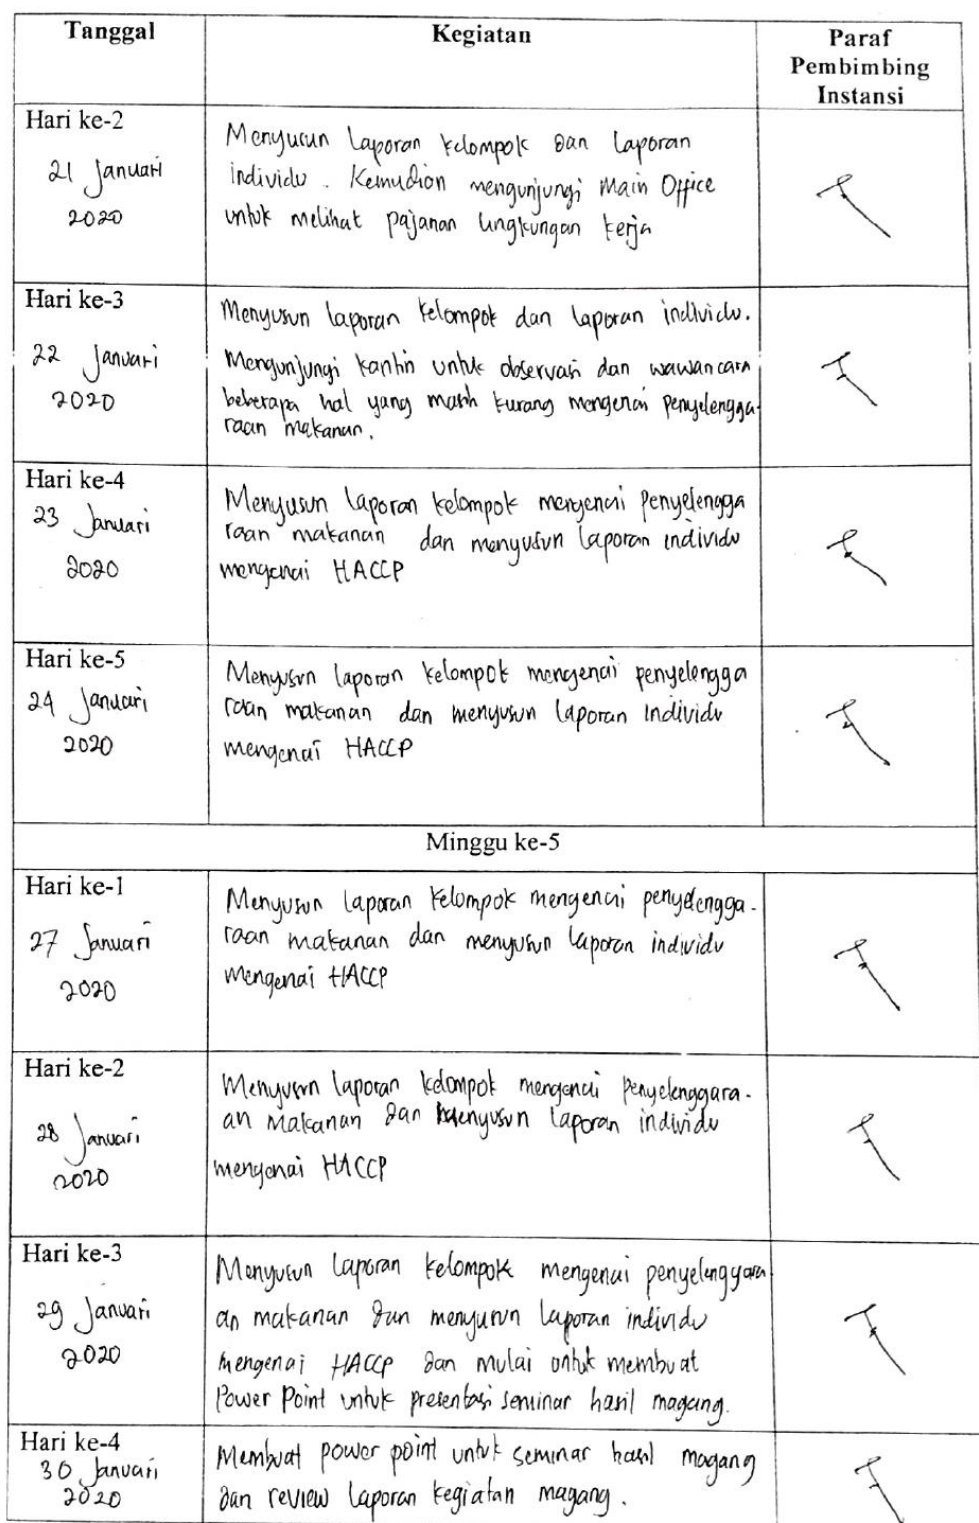 Tanggal Kegiatan Paraf
Pembimbing
Instansi
Hari ke-2
21 Januari
2020
Menyusun laporan kelompok dan laporan
individu. Kemudian mengunjungi Main Office
untuk melihat pajanan lingkungan kerja
Hari ke-3
22 Januari
2020
Menyusun laporan kelompok dan laporan individu.
Mengunjungi kantin untuk observasi dan wawancara
beberapa hal yang masih kurang mengenai penyelengga-
raan makanan.
Hari ke-4
23 Januari
2020
Menyusun laporan kelompok mengenai penyelengga
raan makanan dan menyusun laporan individu
mengenai HACCP
Hari ke-5
24 Januari
2020
Menyusun laporan kelompok mengenai penyelengga
raan makanan dan menyusun laporan individu
mengenai HACCP
Minggu ke-5
Hari ke-1
27 Januari
2020
Menyusun laporan kelompok mengenai penyelengga-
raan makanan dan menyusun laporan individu
mengenai HACCP
Hari ke-2
28 Januari
2020
Menyusun laporan kelompok mengenai penyelenggara-
an makanan dan menyusun laporan individu
mengenai HACCP
Hari ke-3
29 Januari
2020
Menyusun laporan kelompok mengenai penyelenggara
an makanan dan menyusun laporan individu
mengenai HACCP dan mulai untuk membuat
Power Point untuk presentasi seminar hasil magang.
Hari ke-4
30 Januari
2020
Membuat power point untuk seminar hasil magang
dan review laporan kegiatan magang.